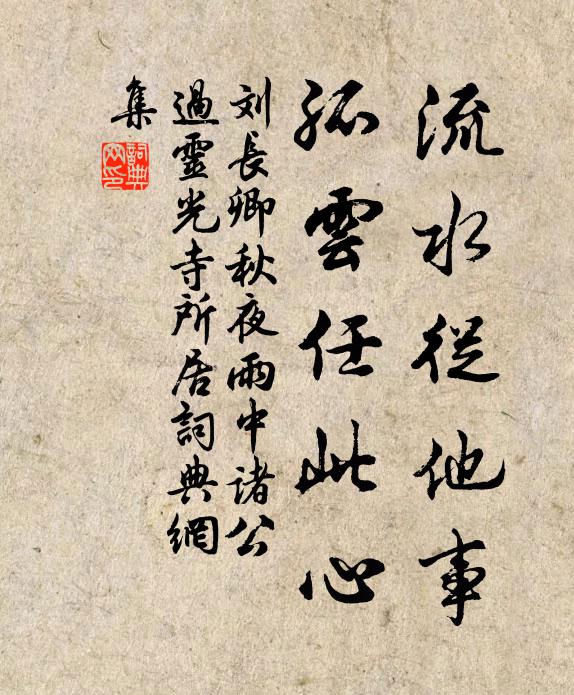 流水從他事
孤雲任此心
刘長卿秋夜雨中诸公
過靈光寺所居詞典網
集
詞典
网印